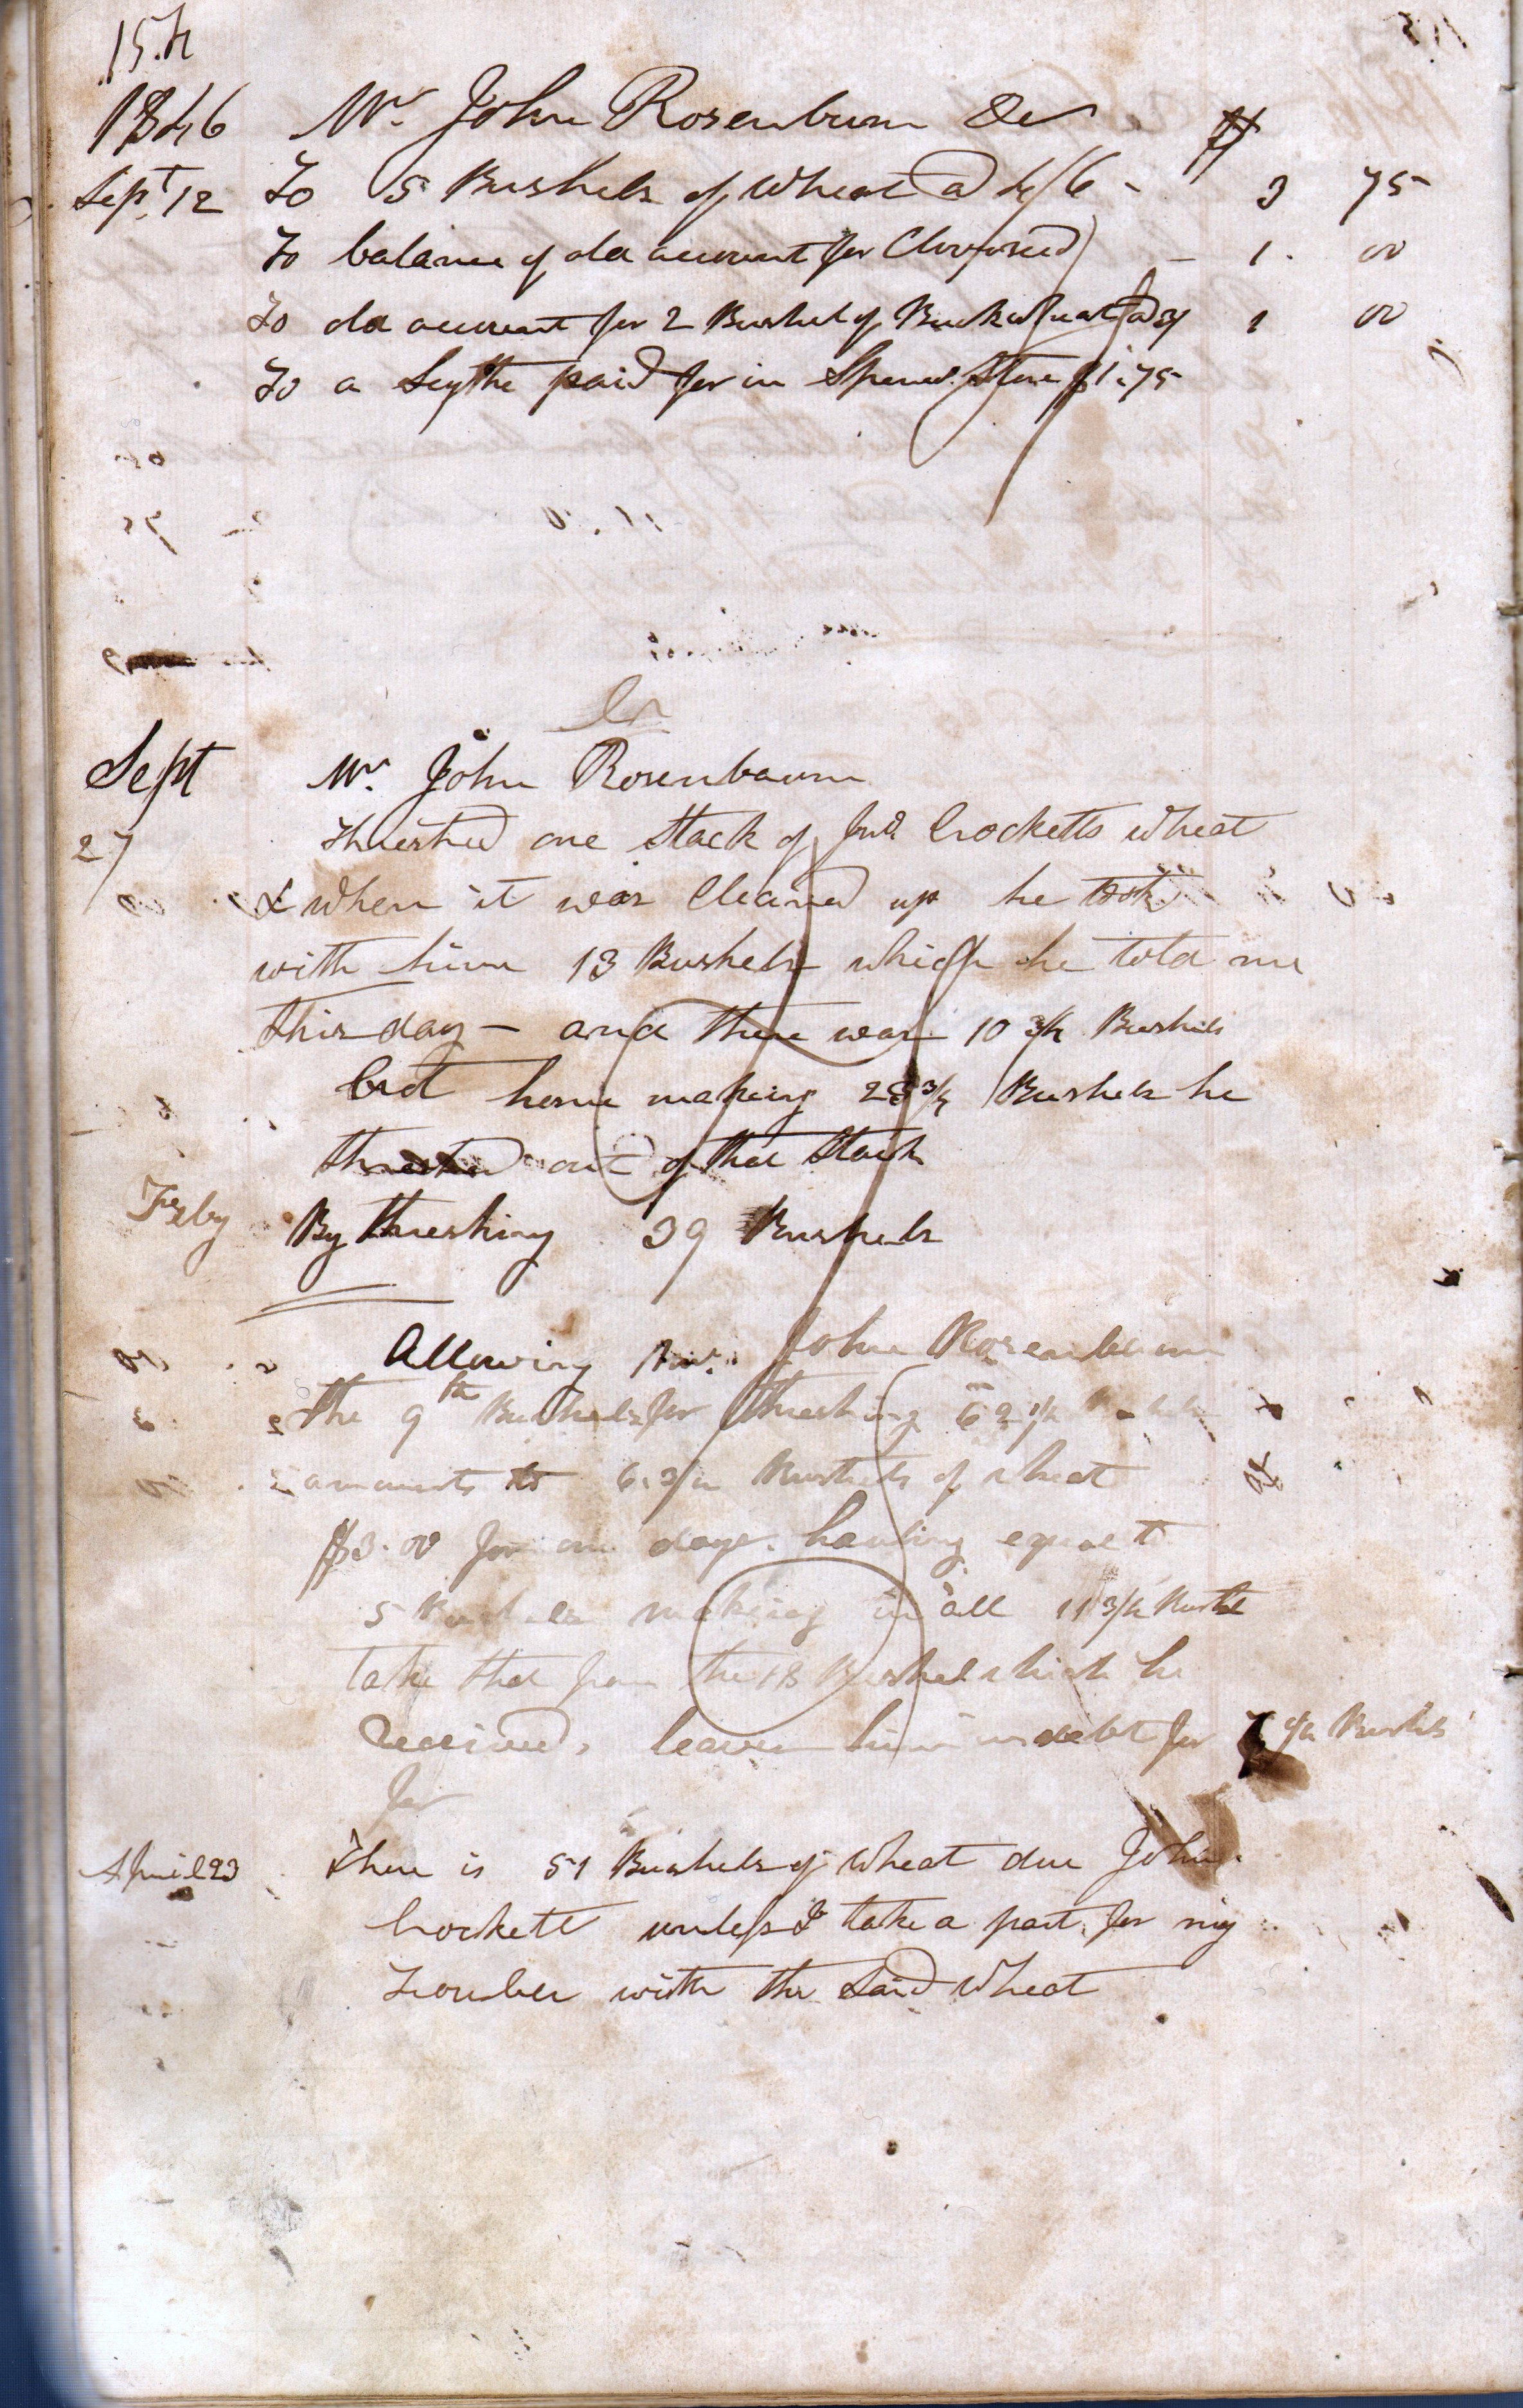 154
1846 Mr. John Rosenbum Dr $
Sept. 12 To 5 Bushels of Wheat @ 4/6 - 3 75
To balance of old account for Cloverseed - 1. 00
To old account for 2 Bushel of Buckwheat @ 3/ 1 00
To a Scythe paid for in Store $1.75
Cr
Sept Mr. John Rosenbaum
27 Threshed one Stack of Jno. Crocketts wheat
& when it was Cleaned up he took
with him 13 Bushels which he told me
this day — and there was 10 3/4 Bushels
brot home making 23 3/4 Bushels he
threshed out of that Stack
Feby By threshing 39 Bushels
Allowing Mr. John Rosenbaum
the 9th Bushels for threshing 62 1/2 Bushels
amounts to 6. 3/4 Bushels of wheat
$3.00 for one days hauling equal to
5 Bushels making in all 11 3/4 Bushl
take that from the 18 Bushel which he
Received, leaves him in debt for 1/4 Bushels
for
April 23 There is 51 Bushels of wheat due John
Crockett unless I take a part for my
trouble with the Said Wheat